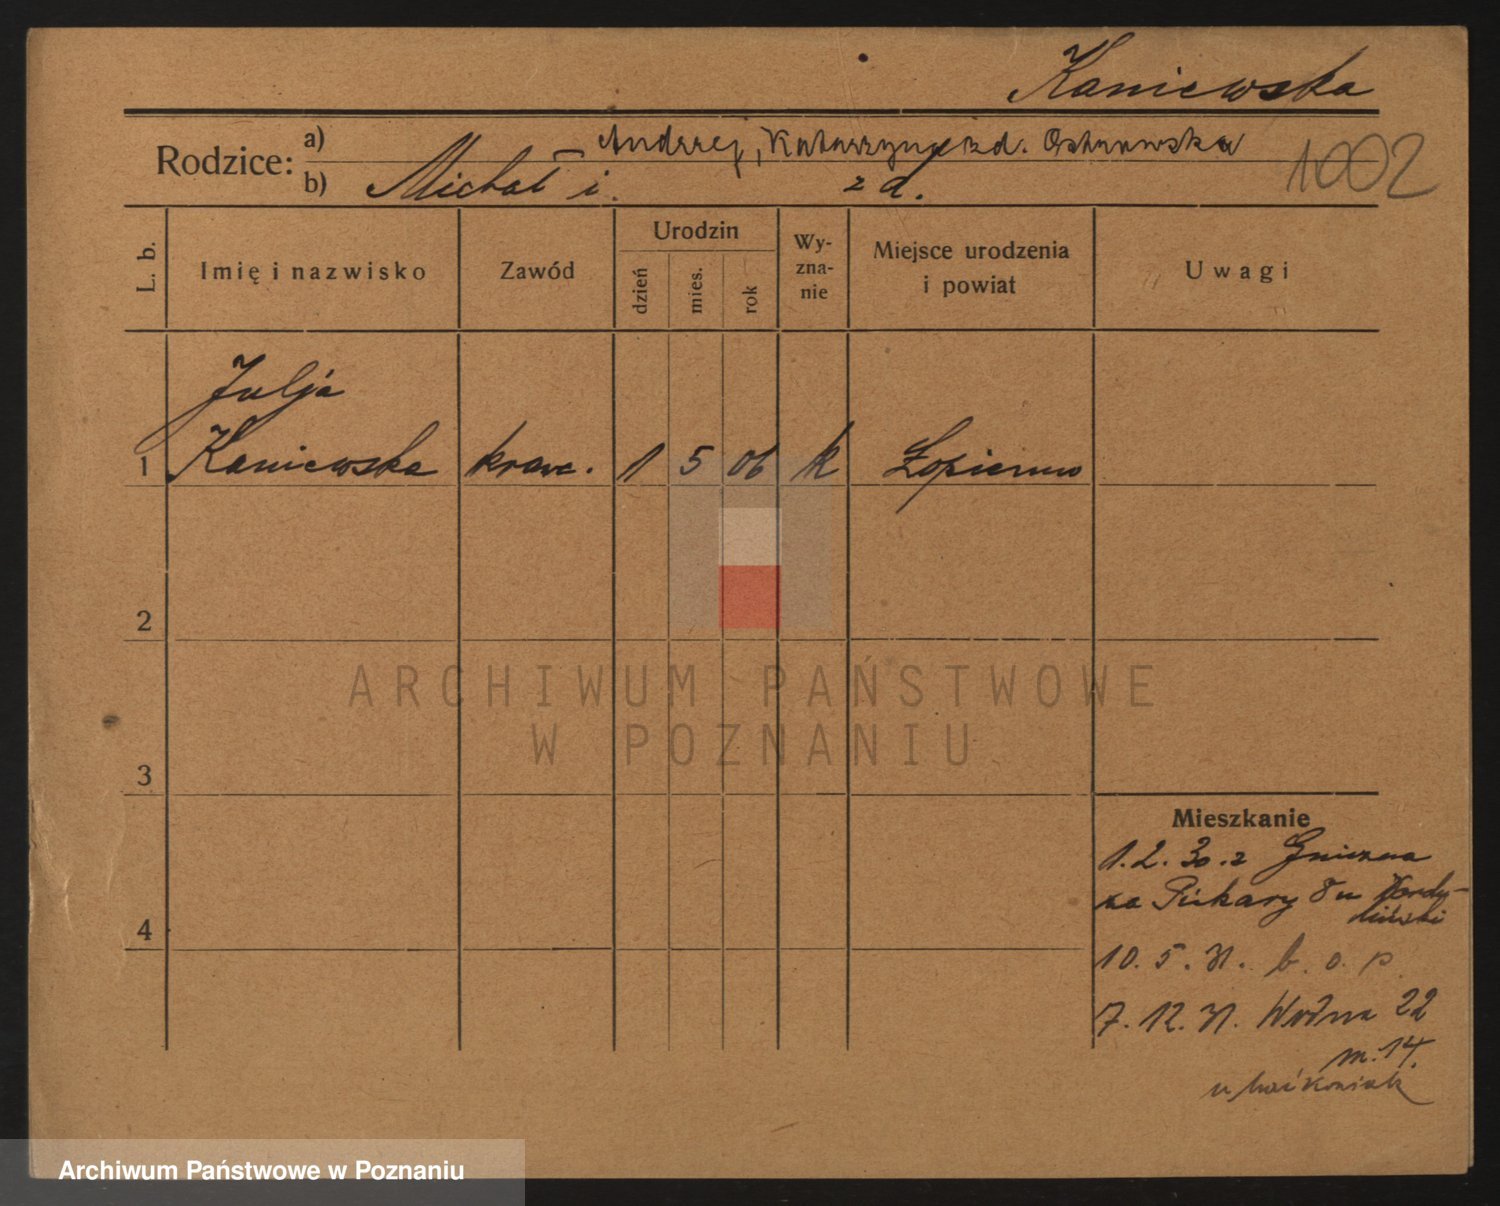 Kaniewska
Rodzice:
a) Andrzej, Katarzyna zd. Ostrowska
b) Michał i. z d.
1002
L. b.
Imię i nazwisko
Zawód
Urodzin
dzień
mies.
rok
Wy-
zna-
nie
Miejsce urodzenia
i powiat
Uwagi
Julja
1 Kaniewska kraw. 1 5 06 k Łopienno
2
3
4
Mieszkanie
1.2.30. z Gniezna
na Piekary 8 u
10.5.31. b. o. p.
7.12.31. Wodna 22
m. 14.
u
ARCHIWUM PAŃSTWOWE
W POZNANIU
Archiwum Państwowe w Poznaniu